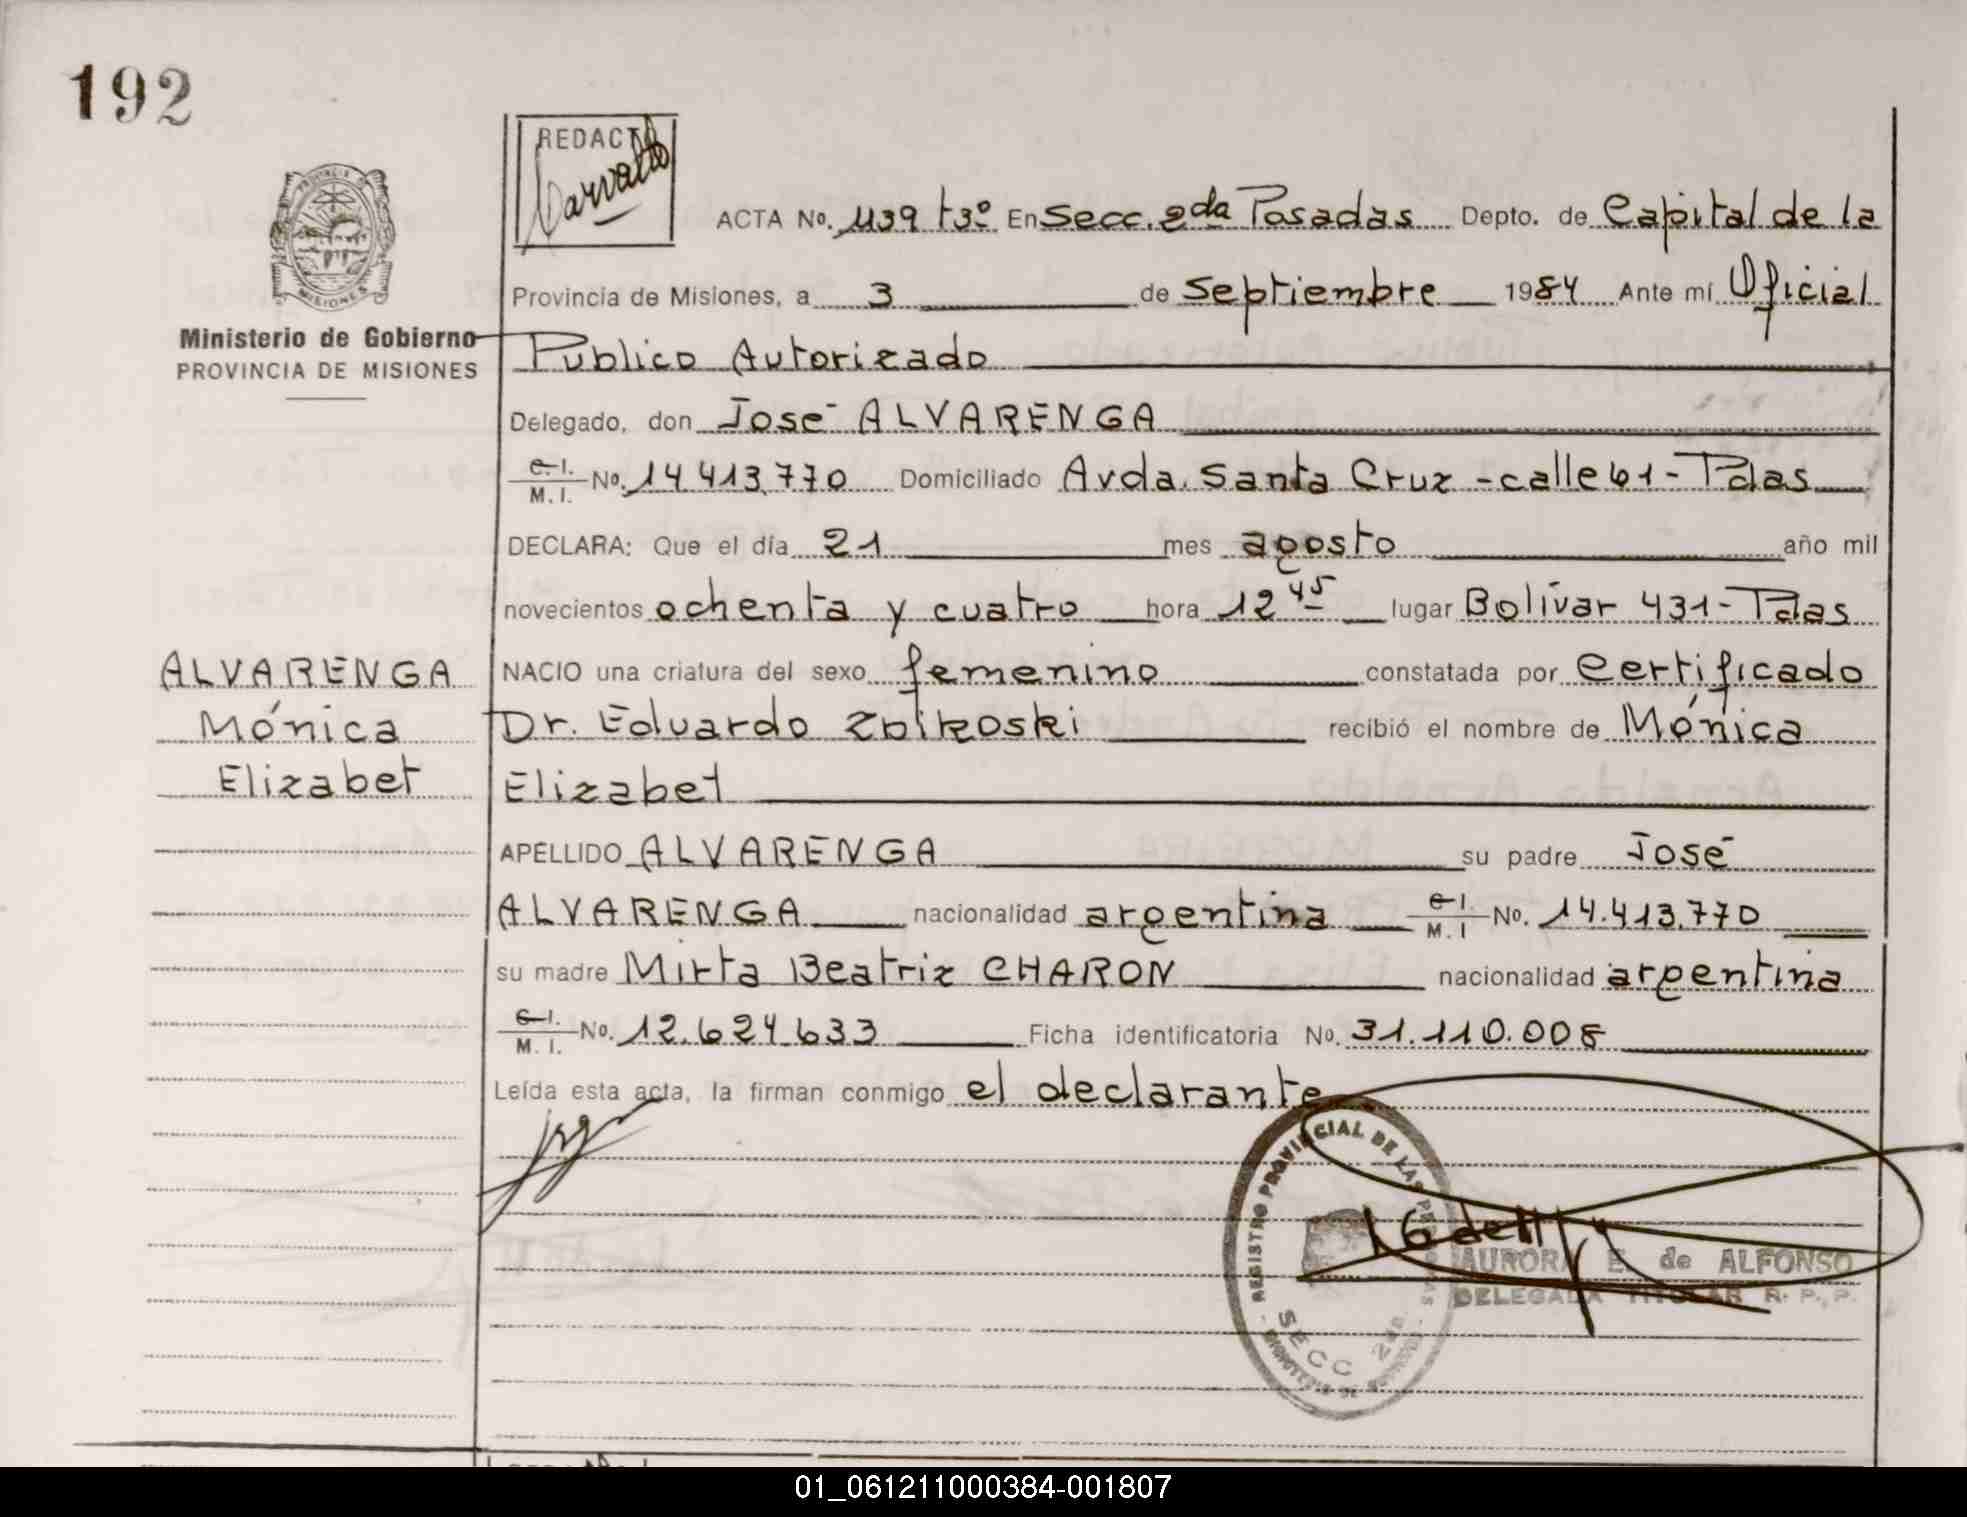 192
REDACTÓ
Carvallo
PROVINCIA DE
MISIONES
Ministerio de Gobierno
PROVINCIA DE MISIONES
ACTA No. 1139 t3º En Secc. 2da Posadas Depto. de Capital de la
Provincia de Misiones, a 3 de Septiembre 1984 Ante mí Oficial
Publico Autorizado
Delegado, don José ALVARENGA
C. I. M. I. No. 14 413.770 Domiciliado Avda. Santa Cruz - calle 61 - Pdas
DECLARA: Que el día 21 mes agosto año mil
novecientos ochenta y cuatro hora 12 45 lugar Bolívar 431 - Pdas
ALVARENGA
Mónica
Elizabet
NACIO una criatura del sexo femenino constatada por Certificado
Dr. Eduardo Zbikoski recibió el nombre de Mónica
Elizabet
APELLIDO ALVARENGA su padre José
ALVARENGA nacionalidad argentina C. I. M. I No. 14.413.770
su madre Mirta Beatriz CHARON nacionalidad argentina
C. I. M. I. No. 12.624.633 Ficha identificatoria No. 31.110.008
Leída esta acta, la firman conmigo el declarante
REGISTRO PROVINCIAL DE LAS PERSONAS
SECC 2da.
AURORA E. de ALFONSO
DELEGADA TITULAR R. P. P.
01_061211000384-001807